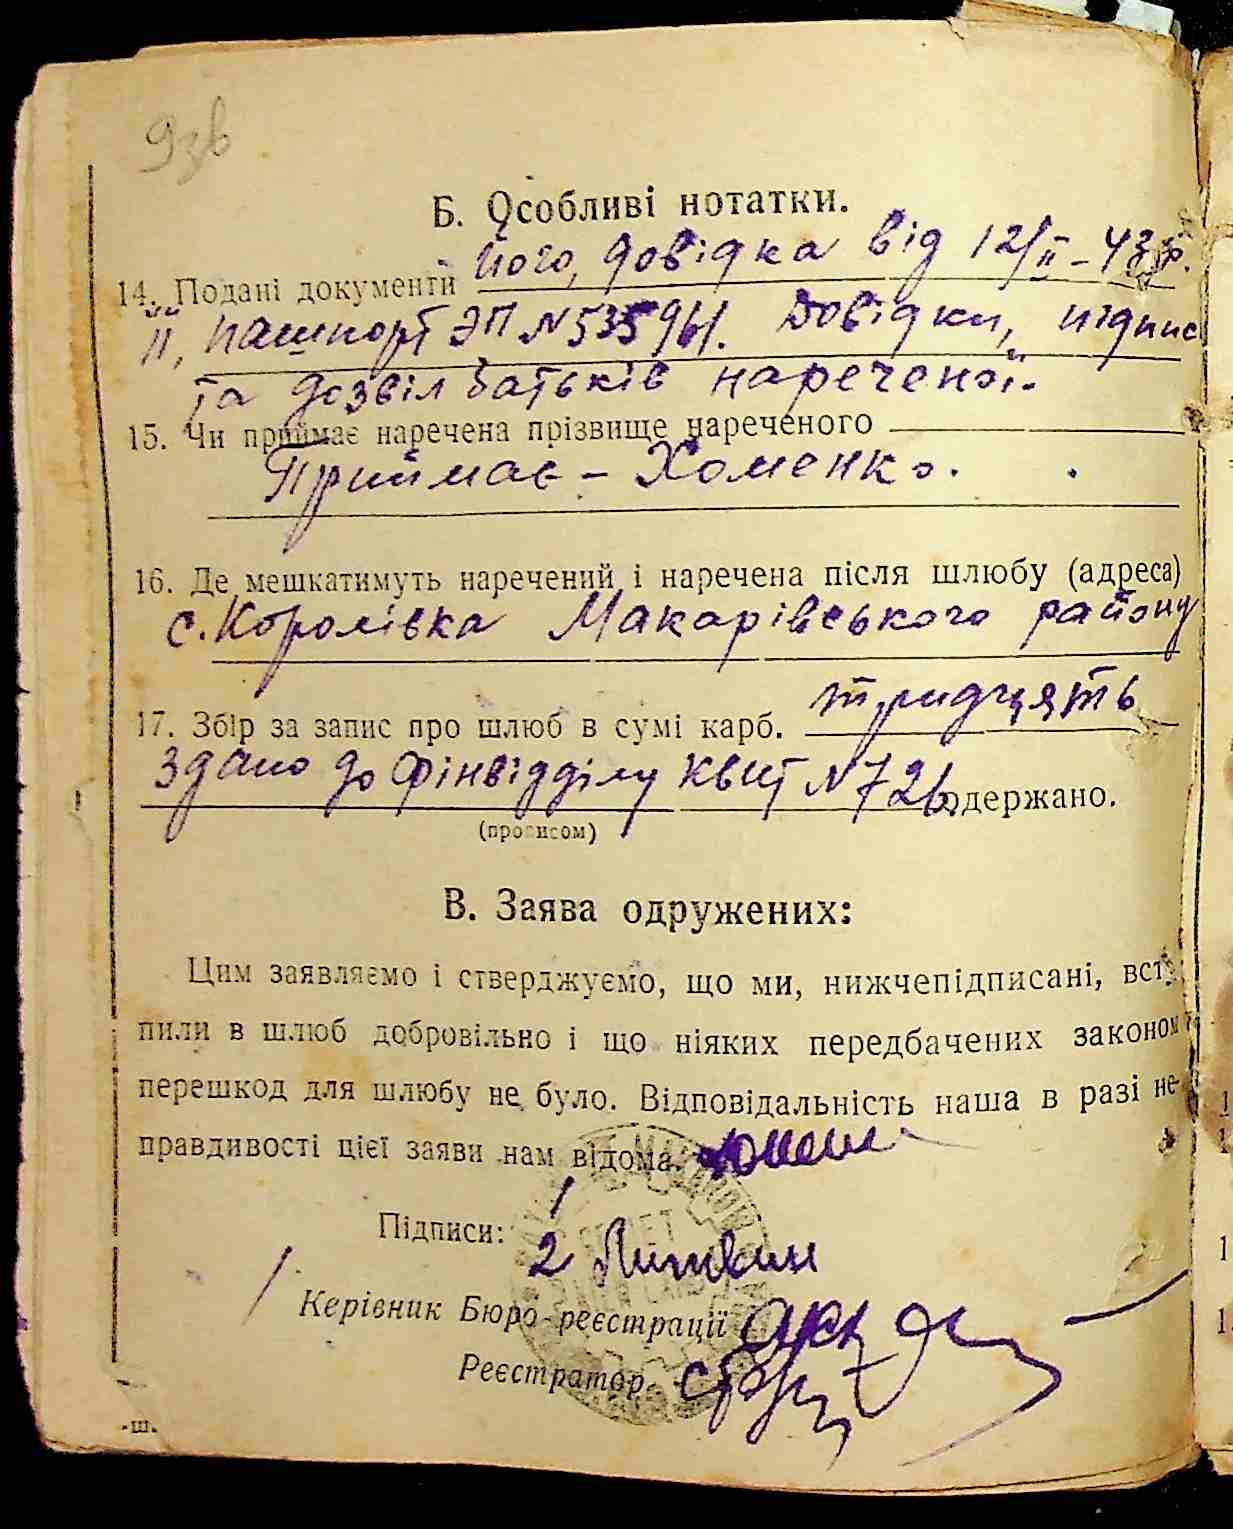 93б
Б. Особливі нотатки.
14. Подані документи його, довідка від 12/II–43 р.
її, пашпорт ЭП N 535961. Довідки, підпис
та дозвіл батьків нареченої.
15. Чи приймає наречена прізвище нареченого
Приймає – Хоменко.
16. Де мешкатимуть наречений і наречена після шлюбу (адреса)
с. Королівка Макарівського району
17. Збір за запис про шлюб в сумі карб. тридцять
здано до Фінвідділу квит N 726 одержано.
(прописом)
В. Заява одружених:
Цим заявляємо і стверджуємо, що ми, нижчепідписані, всту-
пили в шлюб добровільно і що ніяких передбачених законом
перешкод для шлюбу не було. Відповідальність наша в разі не-
правдивості цієї заяви нам відома.
Підписи: 1
2 Литвин
Керівник Бюро-реєстрації
Реєстратор
-ш.